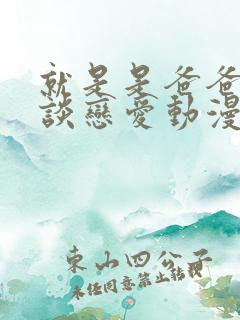 就是是爸爸
談戀愛動漫
東山四公子
未經同意禁止轉載